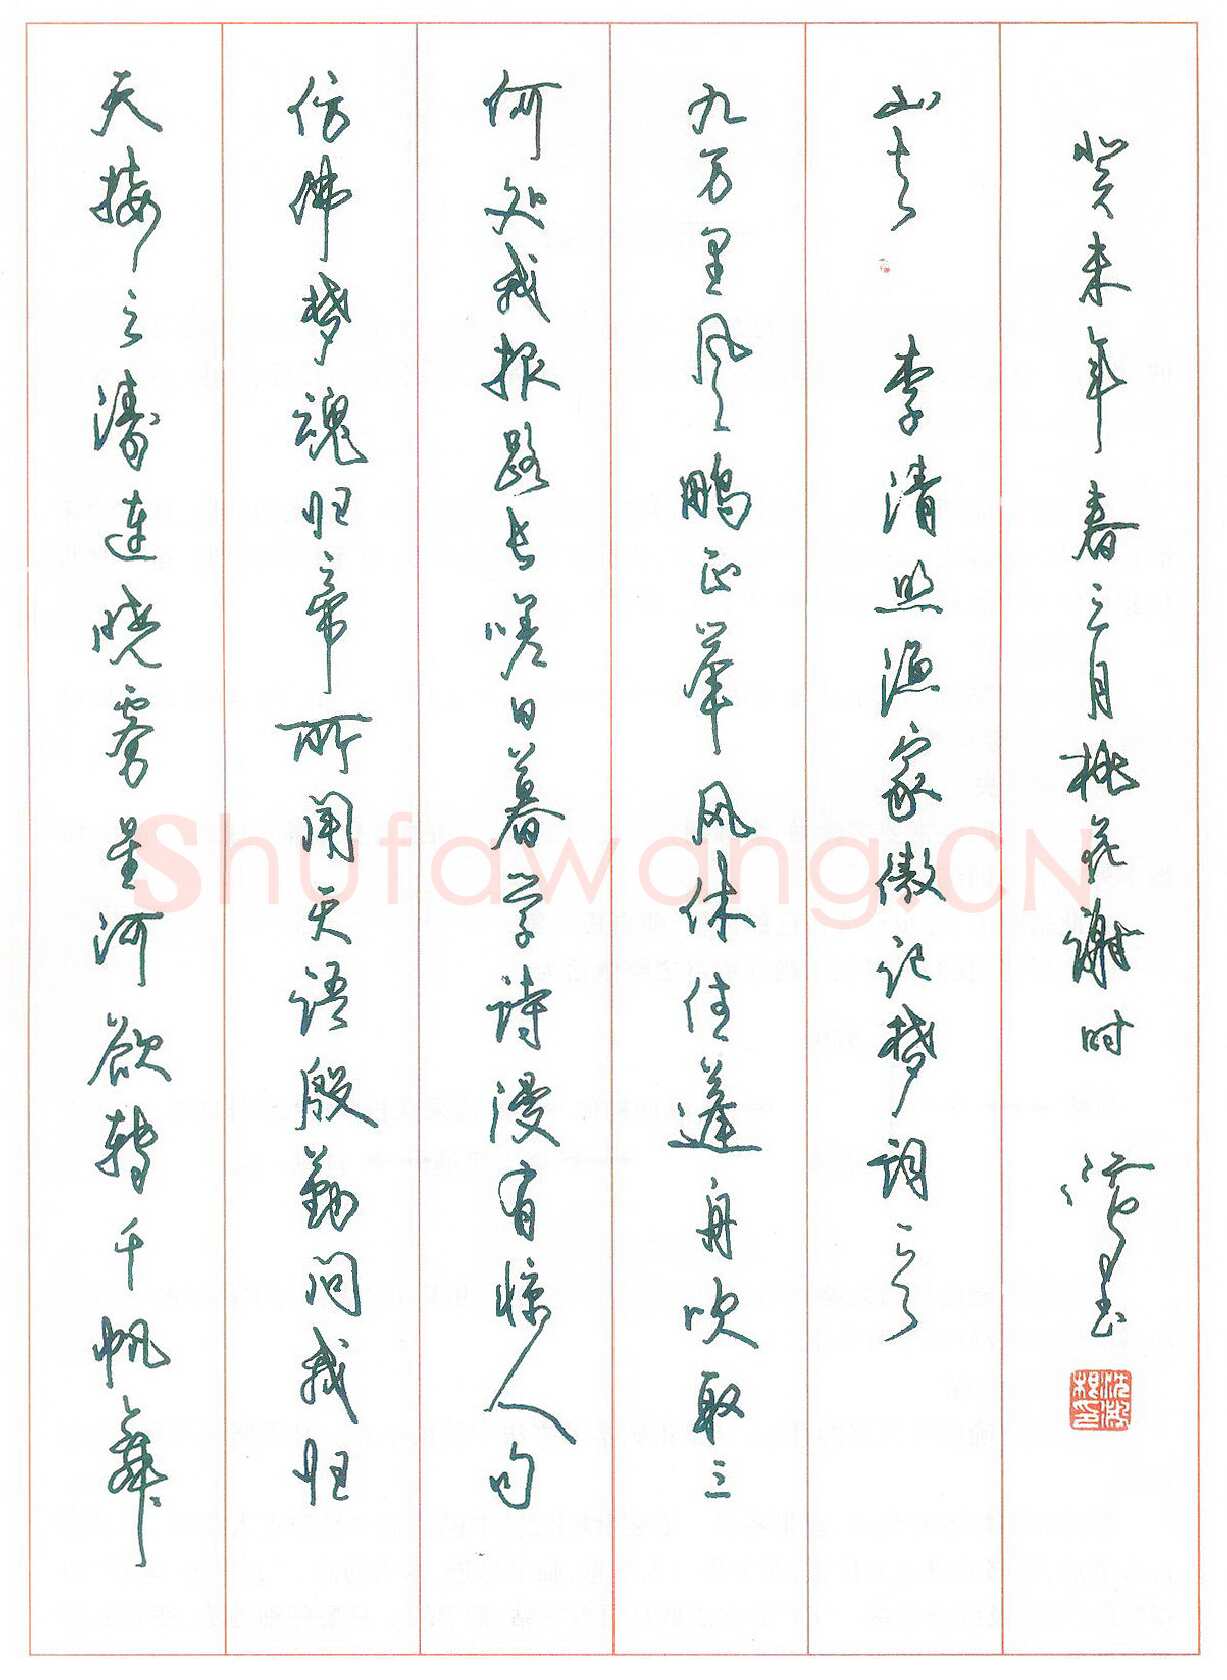 天接云涛连晓雾星河欲转千帆舞
仿佛梦魂归帝所闻天语殷勤问我归
何处我报路长嗟日暮学诗漫有惊人句
九万里风鹏正举风休住蓬舟吹取三
山去 李清照渔家傲记梦词一首
癸未年春三月桃花谢时
沈鸿根印
Shufawang.CN